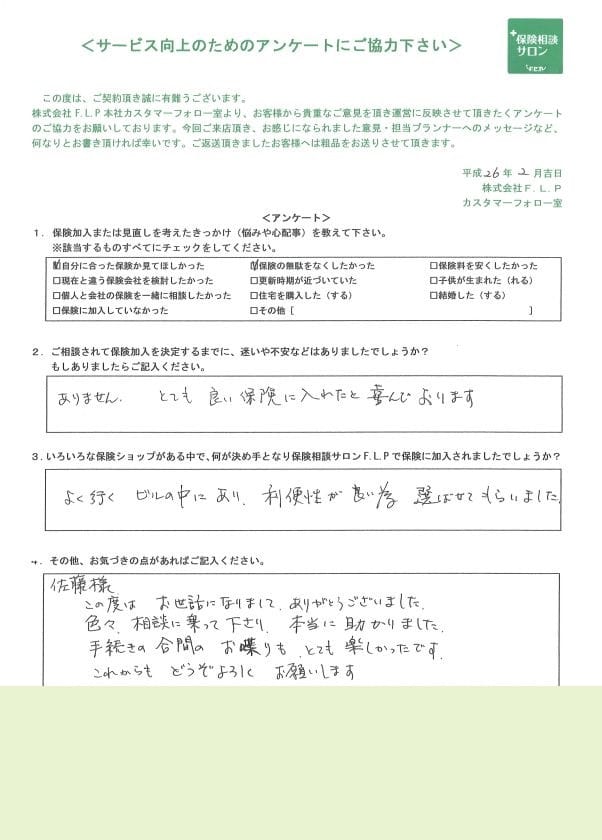 ＜サービス向上のためのアンケートにご協力下さい＞
+保険相談
サロン
F.L.P
この度は、ご契約頂き誠に有難うございます。
株式会社F.L.P本社カスタマーフォロー室より、お客様から貴重なご意見を頂き運営に反映させて頂きたくアンケート
のご協力をお願いしております。今回ご来店頂き、お感じになられました意見・担当プランナーへのメッセージなど、
何なりとお書き頂ければ幸いです。ご返送頂きましたお客様へは粗品をお送りさせて頂きます。
平成26年2月吉日
株式会社F.L.P
カスタマーフォロー室
＜アンケート＞
1．保険加入または見直しを考えたきっかけ（悩みや心配事）を教えて下さい。
※該当するものすべてにチェックをしてください。
☑自分に合った保険か見てほしかった ☑保険の無駄をなくしたかった □保険料を安くしたかった
□現在と違う保険会社を検討したかった □更新時期が近づいていた □子供が生まれた（れる）
□個人と会社の保険を一緒に相談したかった □住宅を購入した（する） □結婚した（する）
□保険に加入していなかった □その他［ ］
2．ご相談されて保険加入を決定するまでに、迷いや不安などはありましたでしょうか？
もしありましたらご記入ください。
ありません. とても良い保険に入れたと喜んでおります
3．いろいろな保険ショップがある中で、何が決め手となり保険相談サロンF.L.Pで保険に加入されましたでしょうか？
よく行くビルの中にあり、利便性が良い為 選ばせてもらいました.
4．その他、お気づきの点があればご記入ください。
佐藤様
この度は お世話になりまして、ありがとうございました.
色々、相談に乗って下さり、本当に助かりました.
手続きの合間のお喋りも、とても楽しかったです.
これからも どうぞよろしく お願いします